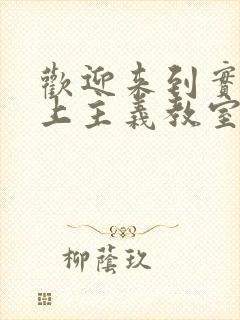 歡迎来到實
上主義教室
柳蔭玖